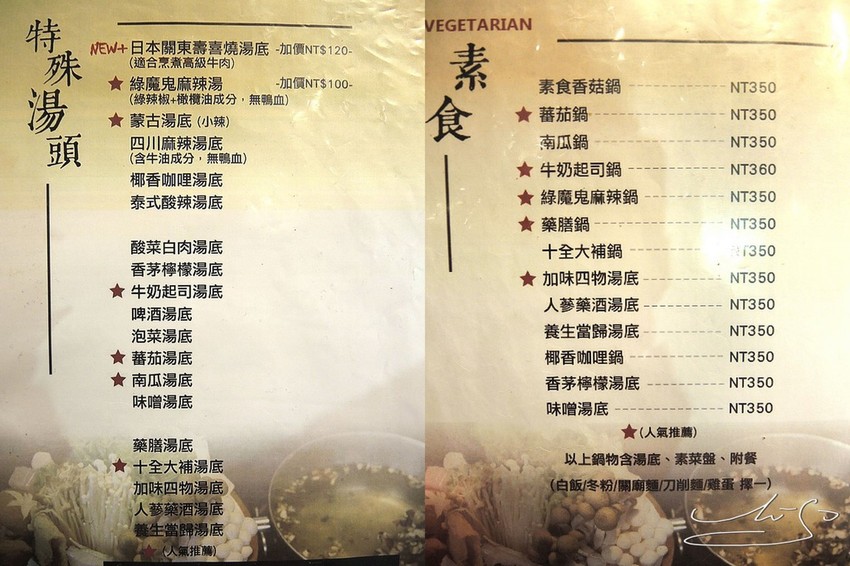 特殊湯頭
NEW+ 日本關東壽喜燒湯底 -加價NT$120-
(適合烹煮高級牛肉)
★ 綠魔鬼麻辣湯 -加價NT$100-
(綠辣椒+橄欖油成分，無鴨血)
★ 蒙古湯底 (小辣)
四川麻辣湯底
(含牛油成分，無鴨血)
椰香咖哩湯底
泰式酸辣湯底
酸菜白肉湯底
香茅檸檬湯底
★ 牛奶起司湯底
啤酒湯底
泡菜湯底
★ 蕃茄湯底
★ 南瓜湯底
味噌湯底
藥膳湯底
★ 十全大補湯底
加味四物湯底
人蔘藥酒湯底
養生當歸湯底
★ (人氣推薦)
VEGETARIAN
素食
素食香菇鍋 NT350
★ 蕃茄鍋 NT350
南瓜鍋 NT350
★ 牛奶起司鍋 NT360
★ 綠魔鬼麻辣鍋 NT350
★ 藥膳鍋 NT350
十全大補鍋 NT350
★ 加味四物湯底 NT350
人蔘藥酒湯底 NT350
養生當歸湯底 NT350
椰香咖哩鍋 NT350
香茅檸檬湯底 NT350
味噌湯底 NT350
★ (人氣推薦)
以上鍋物含湯底、素菜盤、附餐
(白飯/冬粉/關廟麵/刀削麵/雞蛋 擇一)